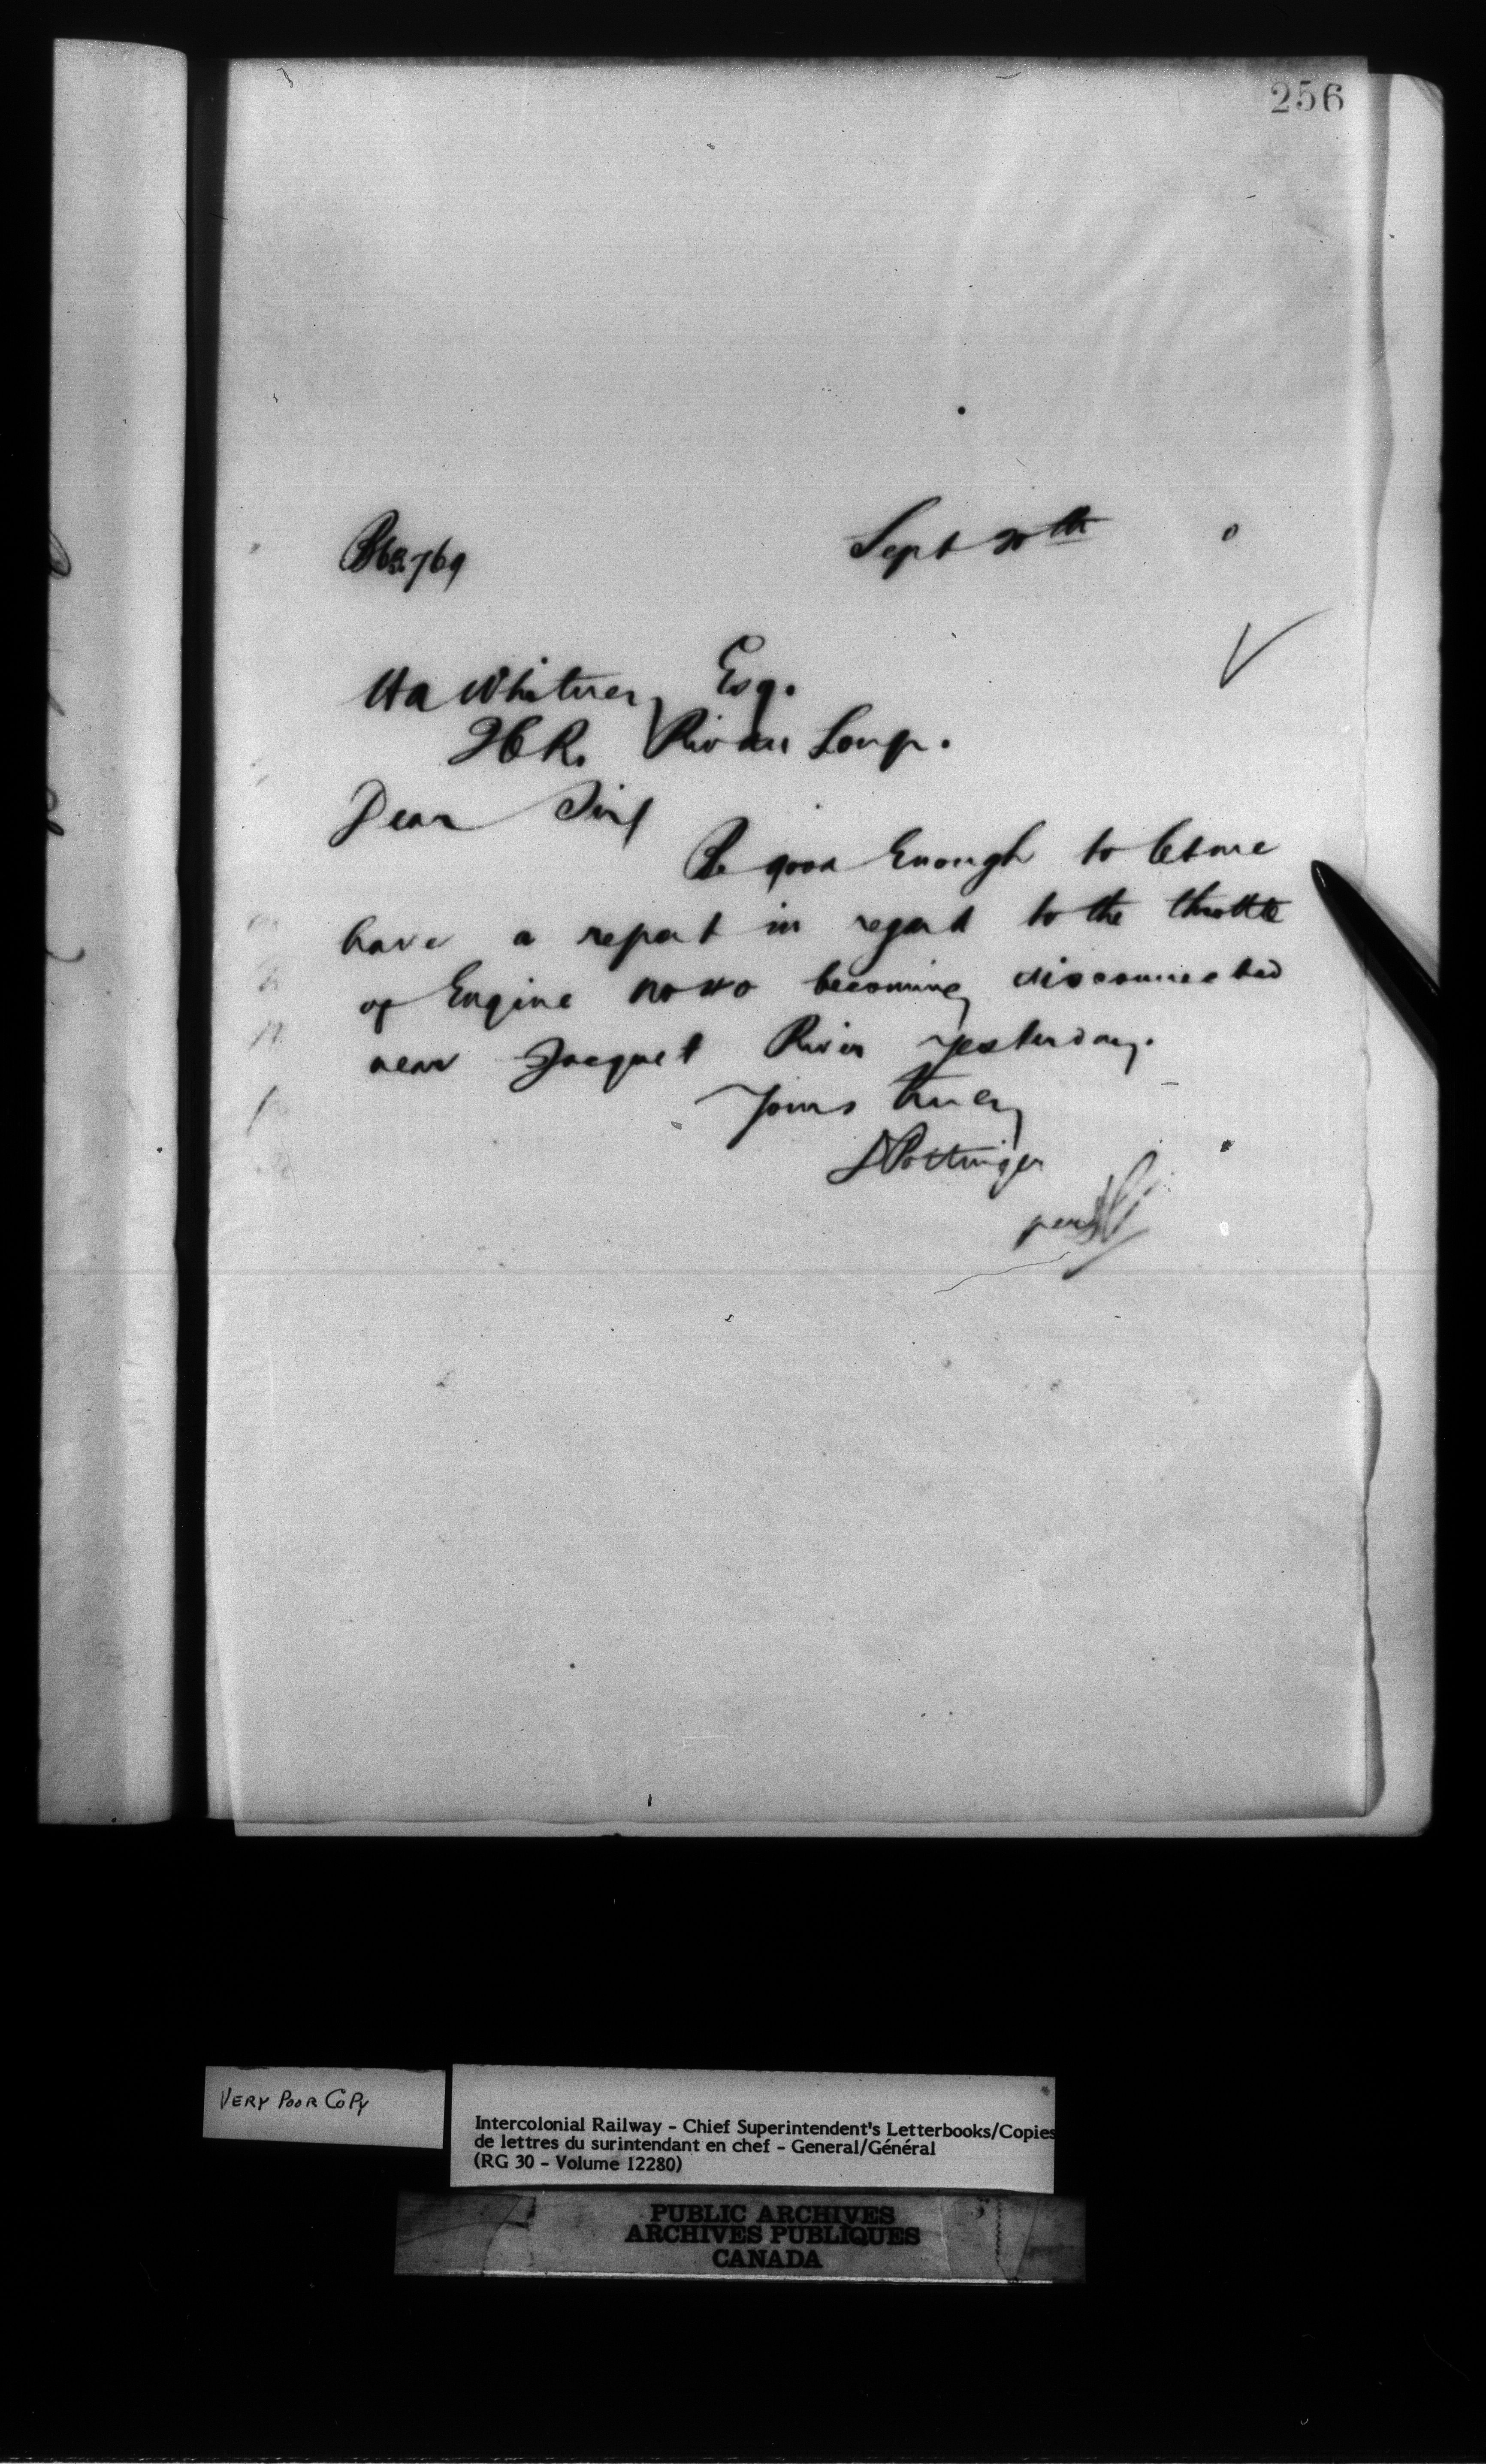 256
Sept 20th
HA Whitney Esq.
ICR. River Loup.
Dear Sir/
Be good Enough to let me
have a report in regard to the throttle
of Engine No becoming disconnected
near Jacquet River yesterday.
Yours truly
DPottinger
per
VERY POOR COPY
Intercolonial Railway - Chief Superintendent's Letterbooks/Copies
de lettres du surintendant en chef - General/Général
(RG 30 - Volume 12280)
PUBLIC ARCHIVES
ARCHIVES PUBLIQUES
CANADA